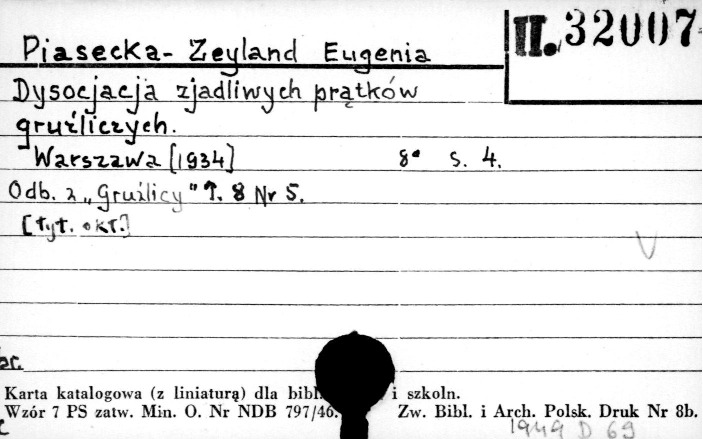 Piasecka-Zeyland Eugenia
II. 32007
Dysocjacja zjadliwych prątków
gruźliczych.
Warszawa [1934] 8° s. 4.
Odb. z „Gruźlicy" T. 8 Nr 5.
[tyt. okł.]
V
Karta katalogowa (z liniaturą) dla bibl i szkoln.
Wzór 7 PS zatw. Min. O. Nr NDB 797/46. Zw. Bibl. i Arch. Polsk. Druk Nr 8b.
1949 D 69